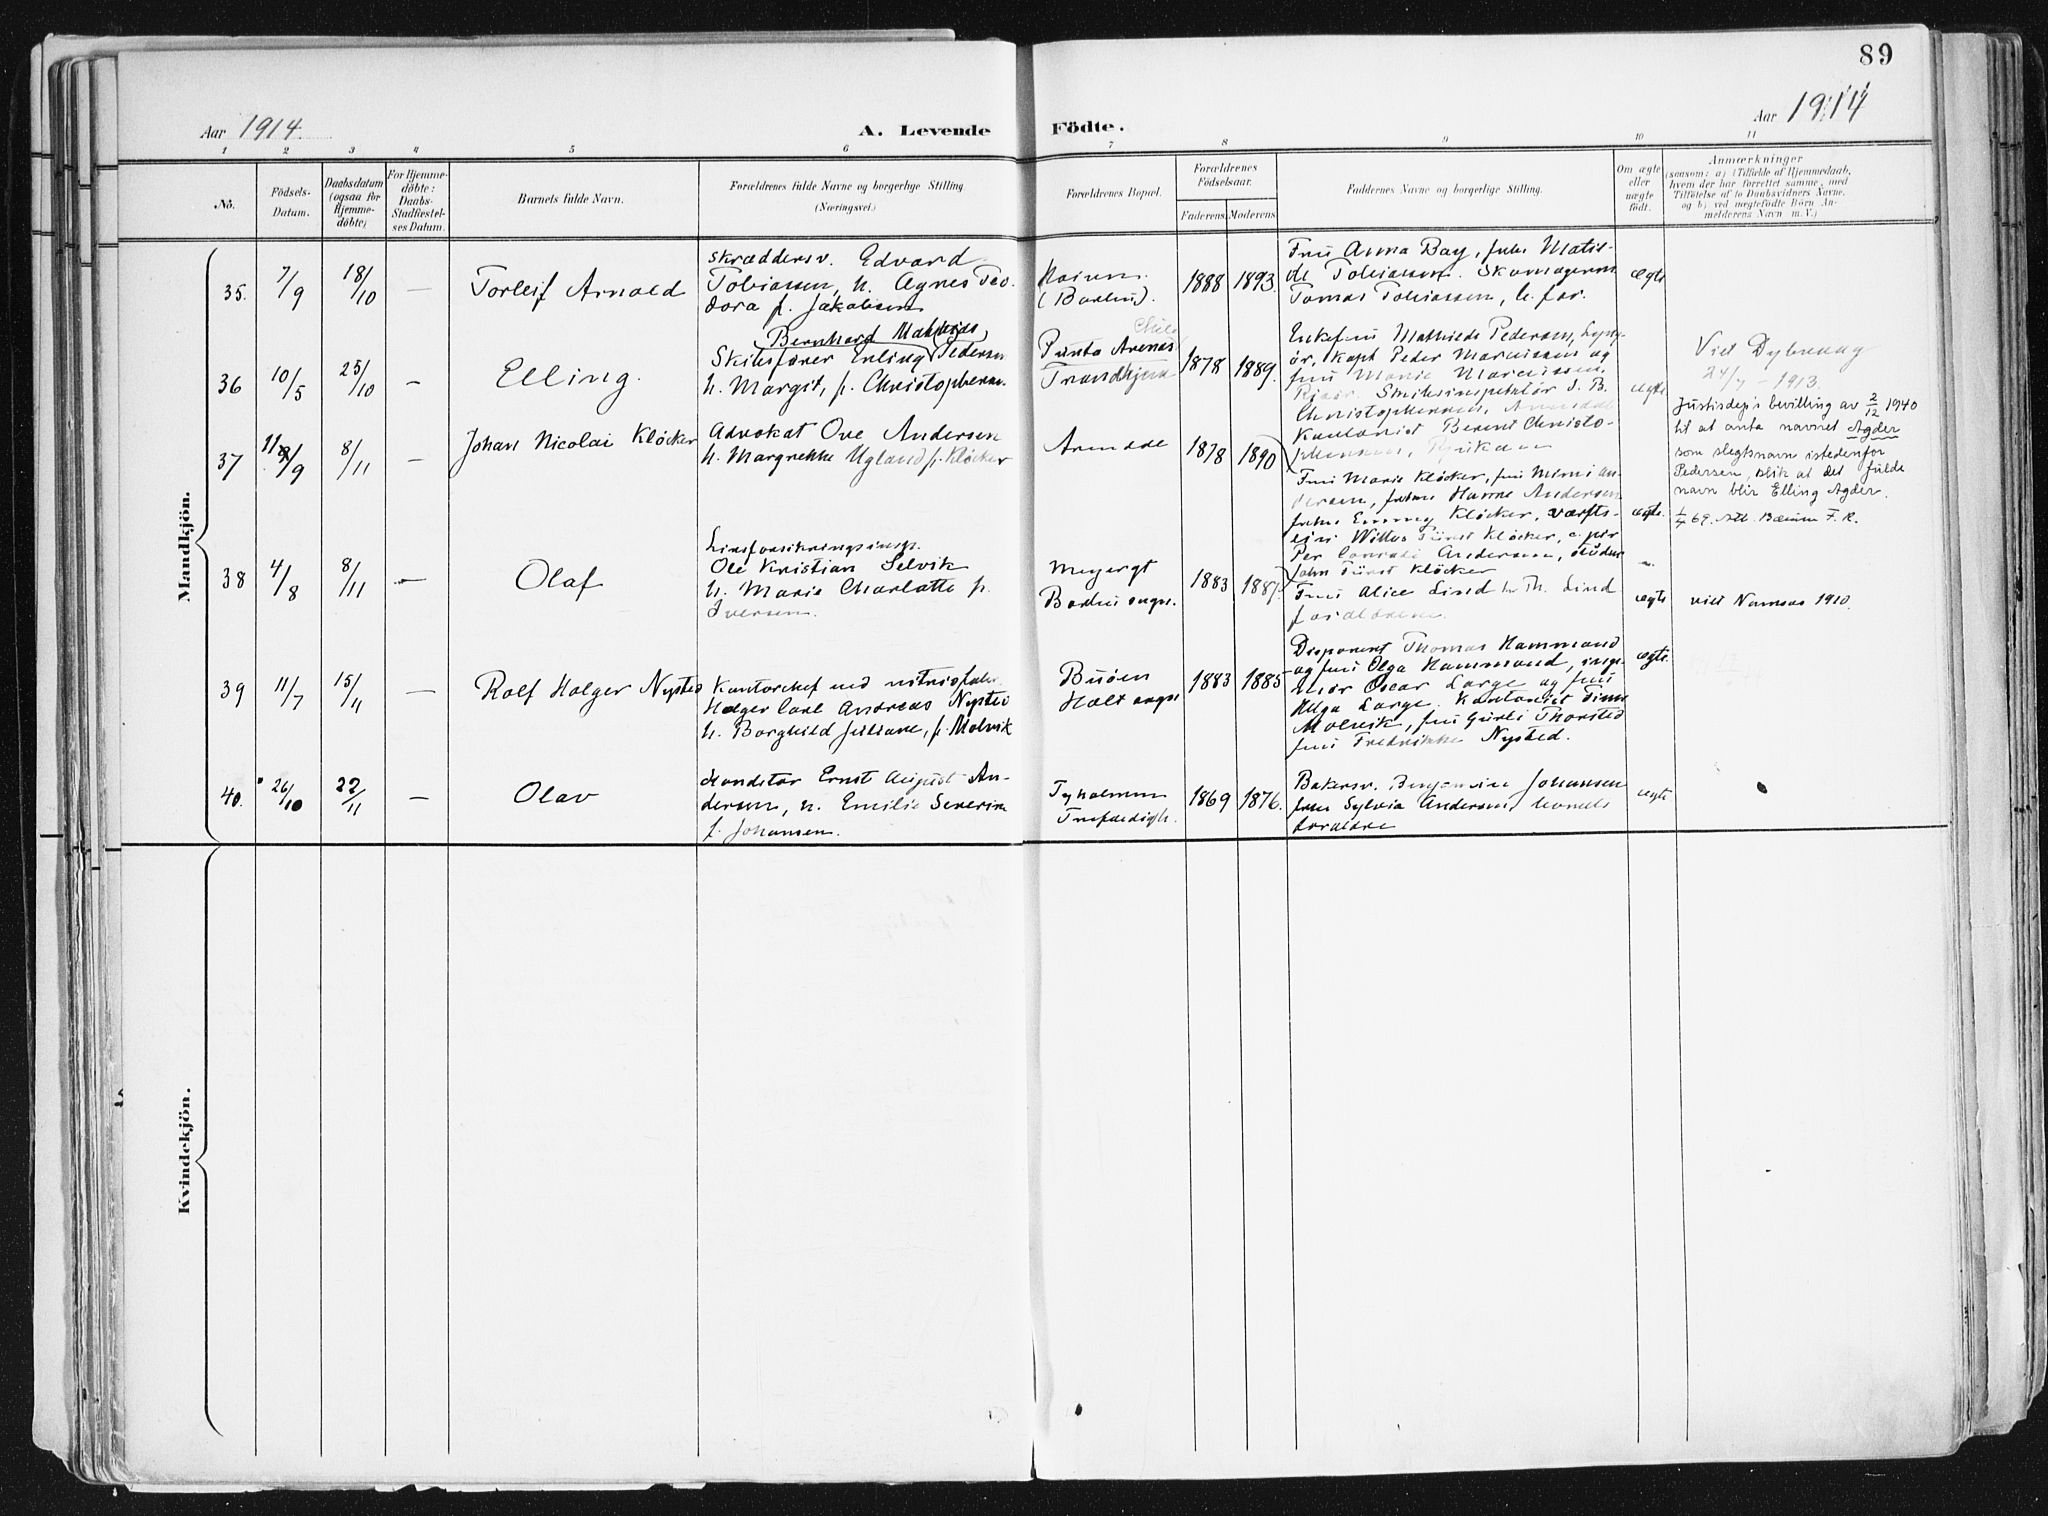 89
Aar 1914.
A. Levende Födte.
Aar 1914
1 2 3 4 5 6 7 8 9 10 11
No.
Födsels-Datum.
Daabsdatum (ogsaa for Hjemme-döbte)
For Hjemme-döbte: Daabs-Stadfæstel-ses Datum.
Barnets fulde Navn.
Forældrenes fulde Navne og borgerlige Stilling
(Næringsvei.)
Forældrenes Bopæl.
Forældrenes Födselsaar.
Faderens. Moderens.
Faddernes Navne og borgerlige Stilling.
Om ægte eller uægte födt.
Anmærkninger
(saasom: a) i Tilfælde af Hjemmedaab,
hvem der har forrettet samme, med
Tilföielse af to Daabsvidners Navne,
og b) ved uægtefödte Börn An-
melderens Navn m. V.)
Mandkjön.
35. 7/9 18/10 — Torleif Arnold
skræddersv. Edvard
Tobiassen, h. Agnes Teo-
dora f. Jakobsen
(Barbu).
1888 1893.
Fru Anna Bay, frk. Matil-
de Tobiassen. Skomagersv.
Tomas Tobiassen, b. far.
ægte
36 10/5 25/10 — Elling.
Bernhard Mathias
Skibsfører Erling Pedersen
h. Margit, f. Christophersen.
Chile
Punta Arenas
Trondhjem
1878 1889.
Enkefru Mathilde Pedersen, Lyng-
ör, kapt Peder Marcussen og
fru Marie Marcussen,
Risör. Skibsinspektör S. B.
Christophersen, Arendal
Kontorist Berent Christo-
phersen, Rjukan
ægte
Viet Dybvaag
24/7 - 1913.
Justisdep's bevilling av 2/12 1940
til at anta navnet Agder
som slegtsnavn istedenfor
Pedersen, slik at det fulde
navn blir Elling Agder.
37 11/9 8/11 — Johan Nicolai Klöcker
Advokat Ove Andersen
h. Margrethe Ugland f. Klöcker
Arendal
1878 1890
Fru Marie Klöcker, fru Mimi An-
dersen, frøken Hanna Andersen
frøken Emmy Klöcker, værfts-
eier Willas Fürst Klöcker,
Per Conradi Andersen, student
John Fürst Klöcker
ægte.
38 4/8 8/11 — Olaf
Livsforsikringsinsp.
Ole Kristian Selvik
h. Marie Charlotte f.
Iversen.
Barbu sogn.
1883 1887.
Fru Alice Lind hr Th. Lind
forældrene.
ægte
viet Namsos 1910.
39 11/7 15/11 — Rolf Holger Nysted
Kontorchef ved
Holger Carl Andreas Nysted
h. Borghild Juliane, f. Molvik
Buöen
Holt sogn
1883 1885
Disponent Thomas Hammond
og fru Olga Hammond, inge-
niör Oscar Lorge og fru
Helga Lorge. Kontorist
Molvik, fru Gurli Thorsted
fru Fredrikke Nysted.
ægte.
40. 26/10 22/11 — Olav
Konditor Ernst August An-
dersen, h. Emilie Severine
f. Johansen.
Tyholmen
1869 1876.
Bakersv. Benjamin Johansen
frk Sylvia Andersen, barnets
foraldre
ægte
Kvindekjön.